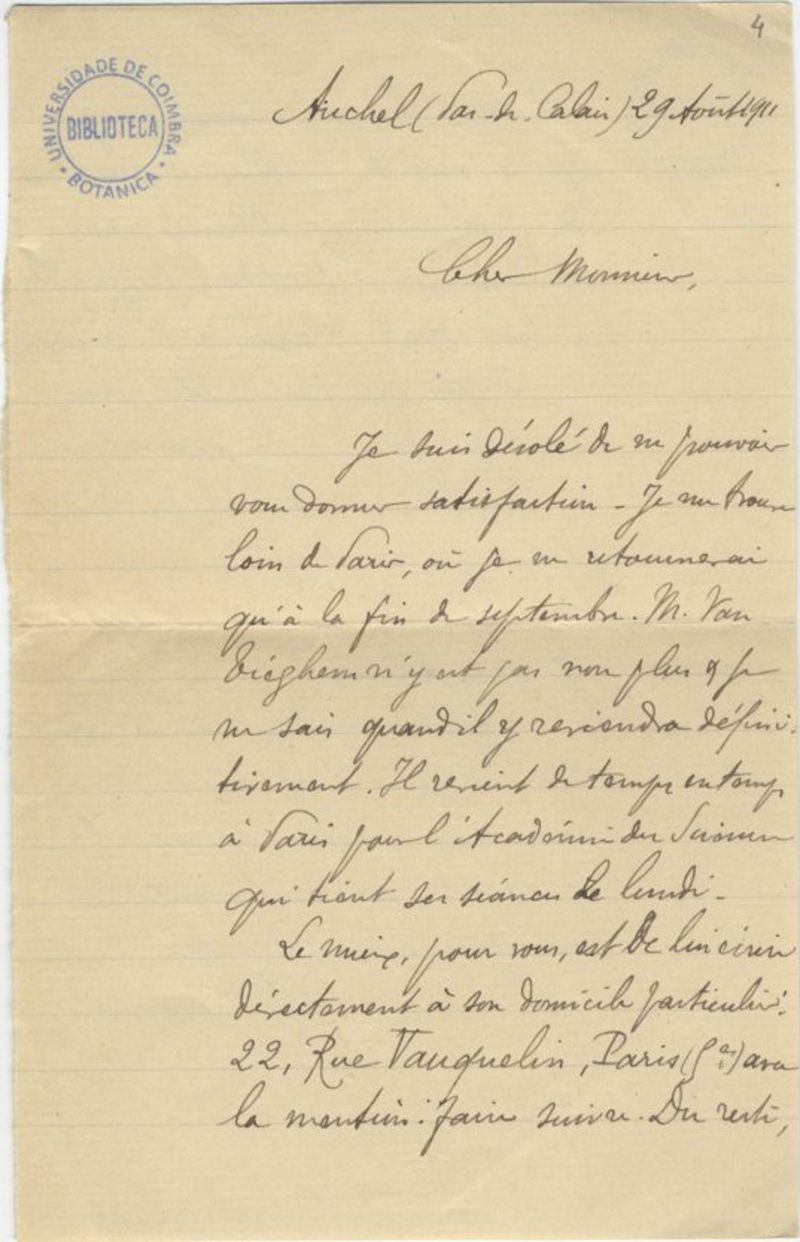 4
UNIVERSIDADE DE COIMBRA
BIBLIOTECA
BOTANICA
Auchel (Pas-de-Calais) 29 Août 1911
Cher Monsieur,
Je suis désolé de ne pouvoir
vous donner satisfaction - Je me trouve
loin de Paris, où je ne retournerai
qu'à la fin de septembre. M. Van
Tieghem n'y est pas non plus & je
ne sais quand il y reviendra défini-
tivement. Il revient de temps en temps
à Paris pour l'Académie des Sciences
qui tient ses séances le lundi -
Le mieux, pour vous, est de lui écrire
directement à son domicile particulier:
22, Rue Vauquelin, Paris (5e) avec
la mention: faire suivre. Du reste,